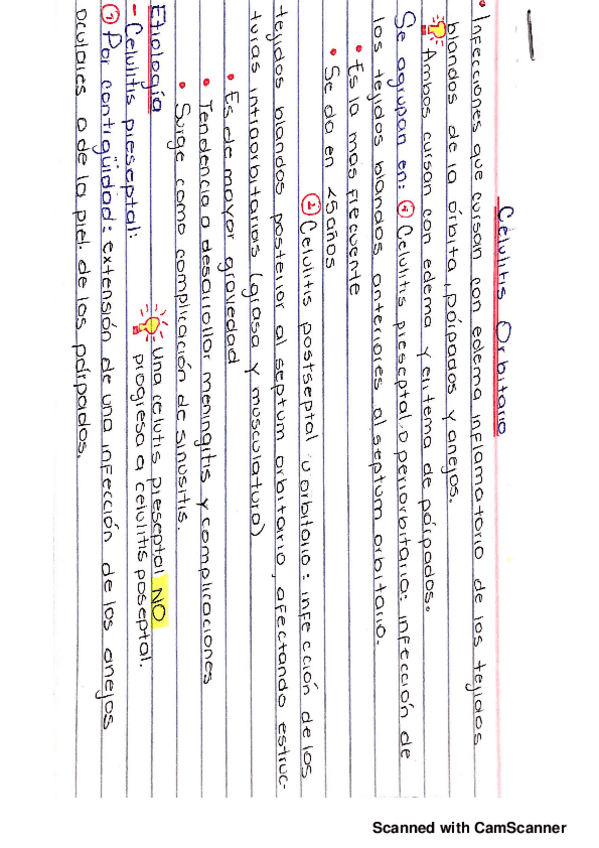 Celulitis Orbitaria
• Infecciones que cursan con edema inflamatorio de los tejidos
blandos de la órbita, párpados y anejos.
Ambos cursan con edema y eritema de párpados.
Se agrupan en: ① Celulitis preseptal o periorbitaria: infección de
los tejidos blandos anteriores al septum orbitario.
• Es la mas frecuente
• Se da en <5años
② Celulitis postseptal u orbitaria: infección de los
tejidos blandos posterior al septum orbitario, afectando estruc-
turas intraorbitarias (grasa y musculatura)
• Es de mayor gravedad
• Tendencia a desarrollar meningitis y complicaciones
• Surge como complicación de sinusitis.
Etiología
una celutis preseptal NO
- Celulitis preseptal:
progresa a celulitis poseptal.
① Por contigüidad: extensión de una infección de los anejos
oculares o de la piel de los párpados.
Scanned with CamScanner